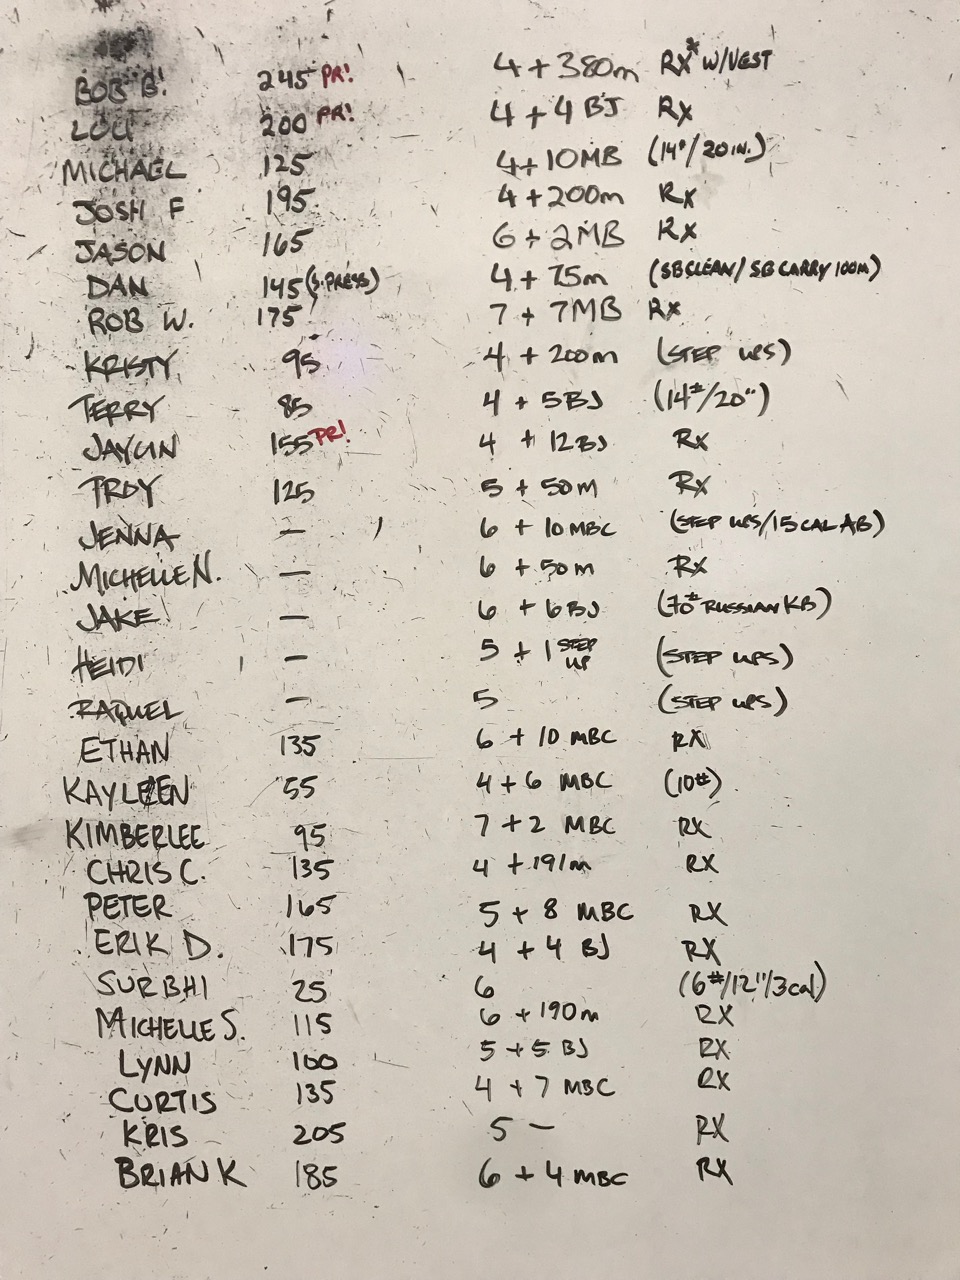 BOB B! 245 PR! 4 + 380m RX* W/VEST
LOU 200 PR! 4 + 4 BJ RX
MICHAEL 125 4 + 10MB (14#/20IN.)
JOSH F 195 4 + 200m RX
JASON 165 6 + 2MB RX
DAN 145 (S.PRESS) 4 + 75m (SBCLEAN/SB CARRY 100M)
ROB W. 175 7 + 7MB RX
KRISTY 95 4 + 200m (STEP UPS)
TERRY 85 4 + 5BJ (14#/20")
JAYLIN 155 PR! 4 + 12BJ RX
TROY 125 5 + 50M RX
JENNA — 6 + 10MBC (STEP UPS/15CAL AB)
MICHELLE N. — 6 + 50m RX
JAKE — 6 + 6BJ (70# RUSSIAN KB)
HEIDI — 5 + 1 STEP UP (STEP UPS)
RAQUEL — 5 (STEP UPS)
ETHAN 135 6 + 10 MBC RX
KAYLEEN 55 4 + 6 MBC (10#)
KIMBERLEE 95 7 + 2 MBC RX
CHRIS C. 135 4 + 191m RX
PETER 165 5 + 8 MBC RX
ERIK D. 175 4 + 4 BJ RX
SURBHI 25 6 (6#/12"/3cal)
MICHELLE S. 115 6 + 190m RX
LYNN 100 5 + 5 BJ RX
CURTIS 135 4 + 7 MBC RX
KRIS 205 5 — RX
BRIAN K 185 6 + 4 MBC RX